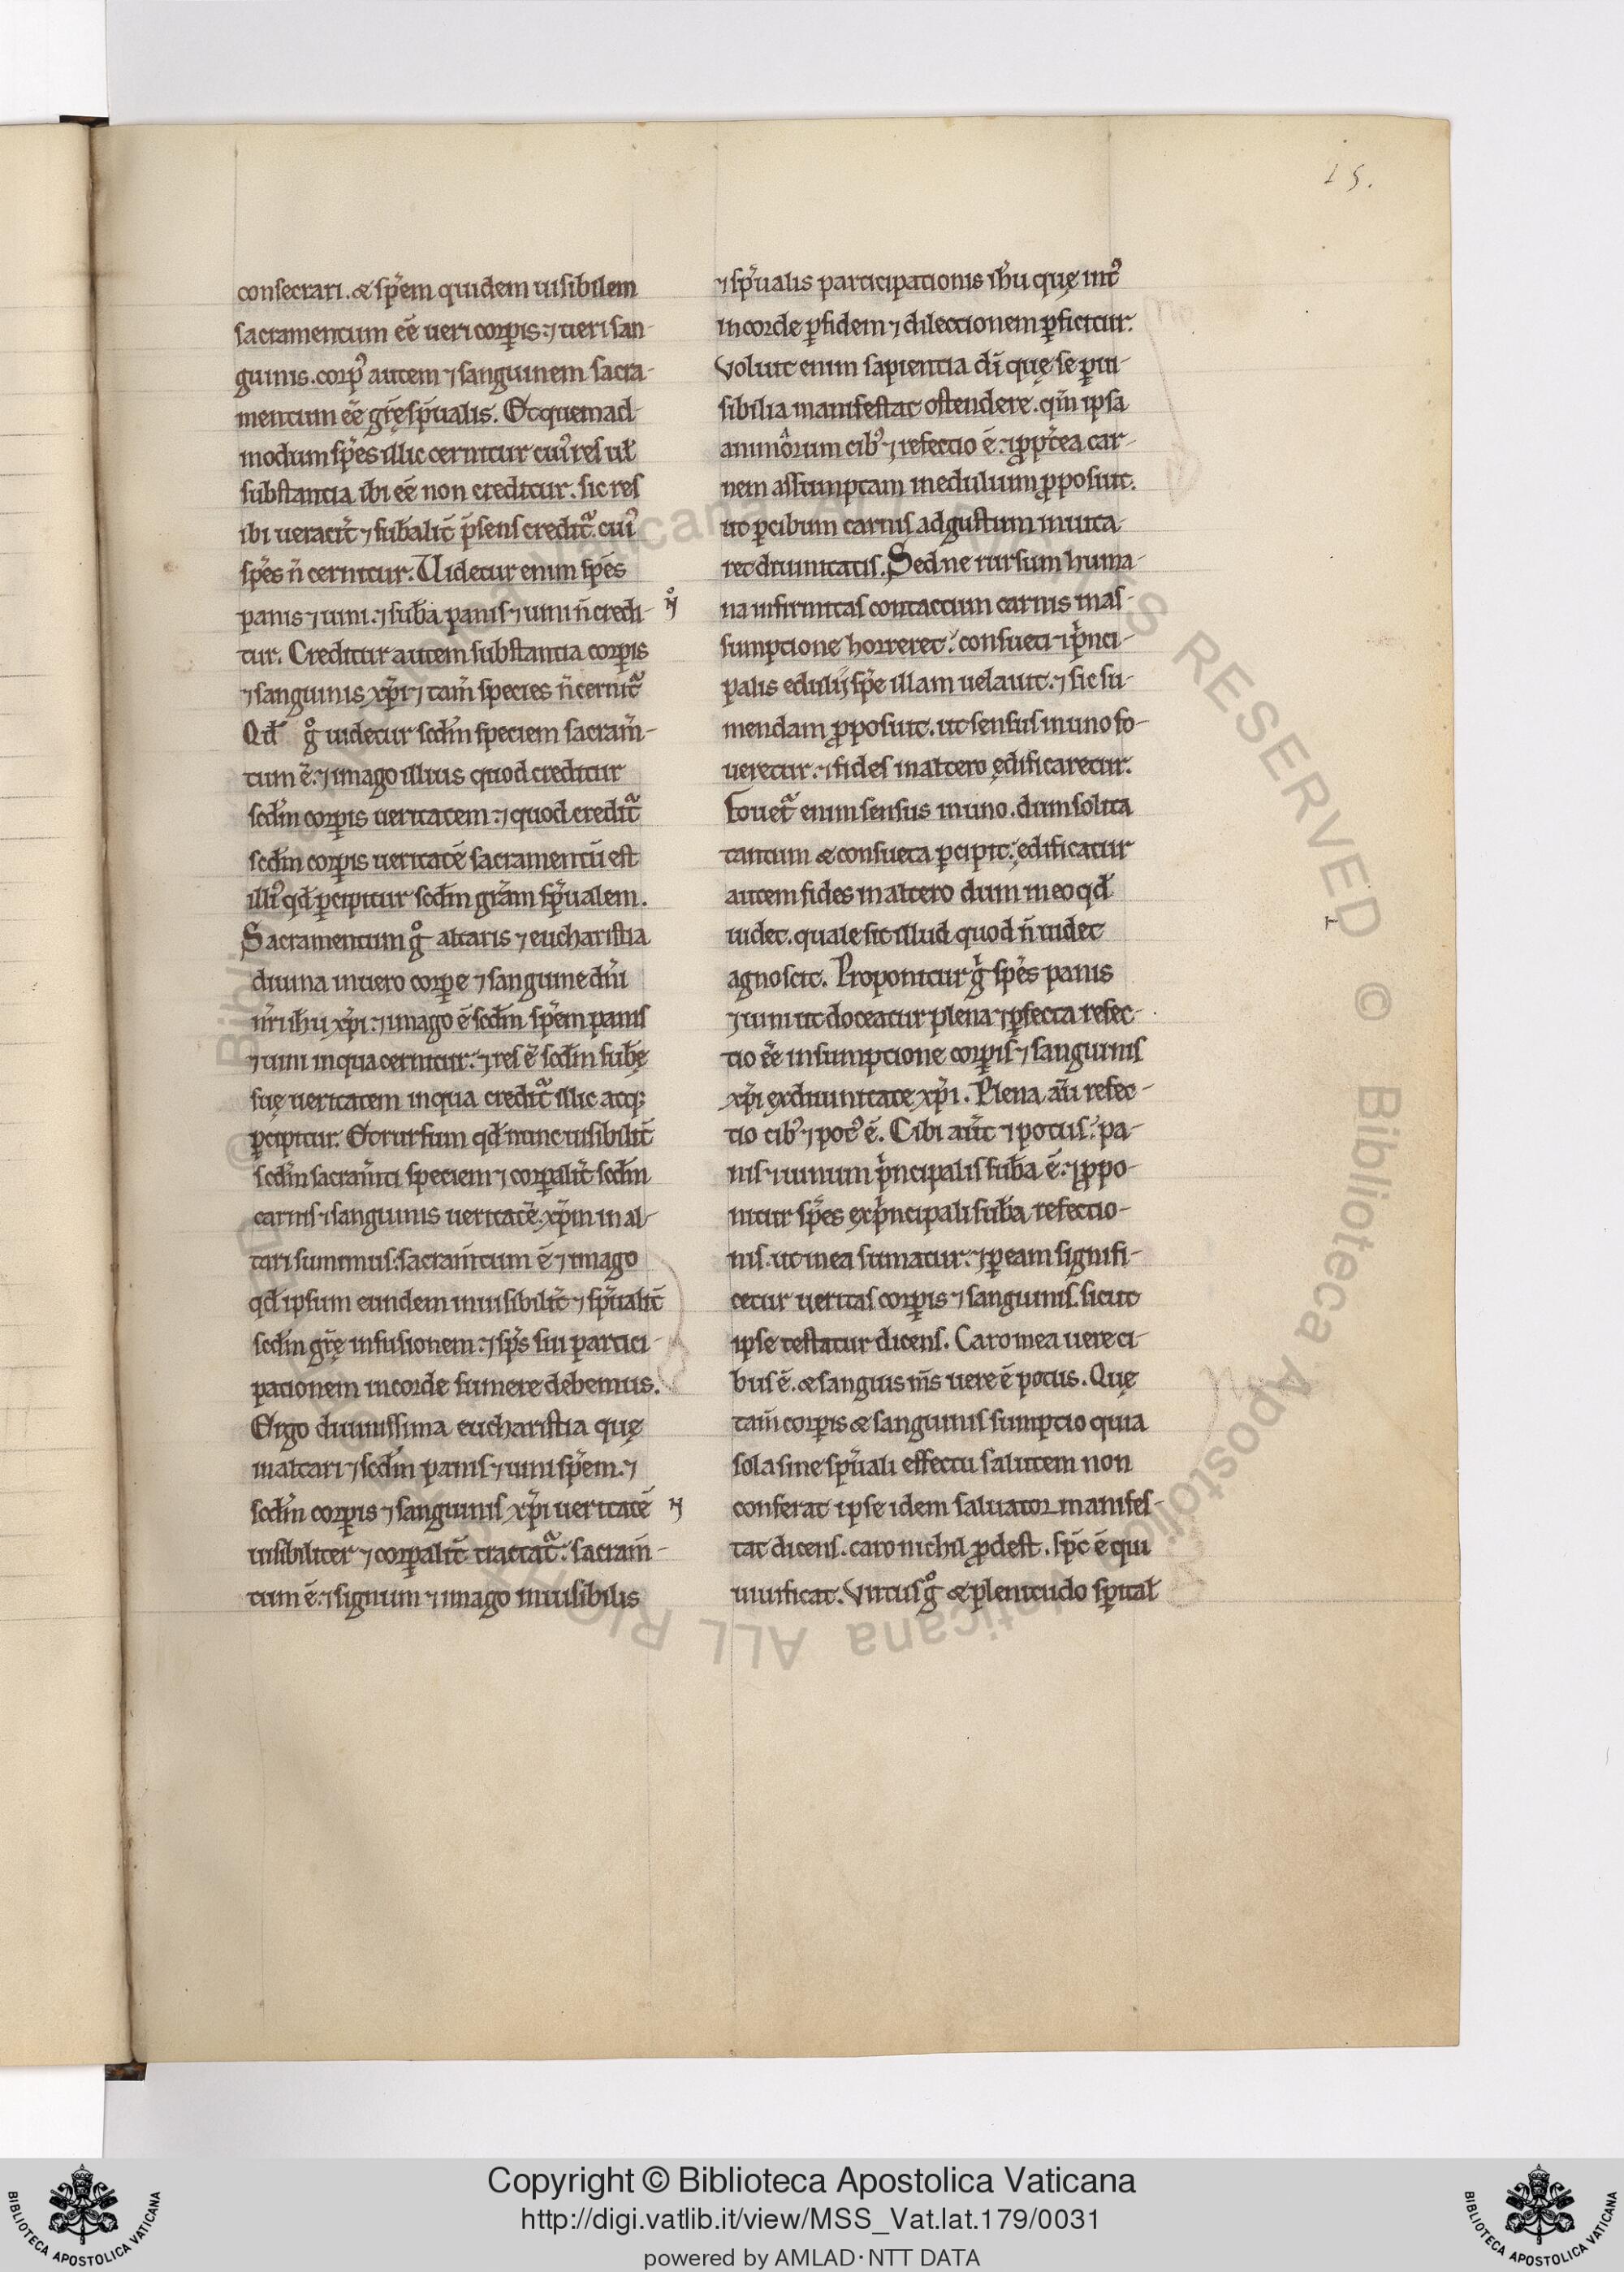 15.
consecrari. & sp̄em quidem uisibilem
sacramentum ēē ueri corꝑis. ⁊ ueri san-
guinis. corpꝰ autem ⁊ sanguinem sacra-
mentum ēē gr̄ę sp̄ualis. Et quemad-
modum sp̄es illic cernitur cuiꝰ res uł
substantia ibi ēē non creditur. sic res
ibi ueracit̄ ⁊ sub̄alit̄ p̄sens credit᷑. cuiꝰ
sp̄es n̄ cernitur. Uidetur enim sp̄es
panis ⁊ uini. ⁊ sub̄a panis ⁊ uini n̄ credi-
tur. Creditur autem substantia corꝑis
⁊ sanguinis xp̄i ⁊ tam̄ species n̄ cernit᷑
Qd̄ gͦ uidetur scd̄m speciem sacram̄-
tum ē. ⁊ imago illius quod creditur
scd̄m corꝑis ueritatem. ⁊ quod credit᷑
scd̄m corꝑis ueritatē sacramentū est
illiꝰ qd̄ ꝑcipitur scd̄m gr̄am sp̄ualem.
Sacramentum gͦ altaris ⁊ eucharistia
diuina in uero corꝑe ⁊ sanguine dn̄i
nr̄i ih̄u xp̄i. ⁊ imago ē scd̄m sp̄em panis
⁊ uini in qua cernitur. ⁊ res ē scd̄m sub̄ę
suę ueritatem in qua credit᷑ illic atqꝫ
ꝑcipitur. Et rursum qd̄ nunc uisibilit̄
scd̄m sacram̄ti speciem ⁊ corꝑalit̄ scd̄m
carnis ⁊ sanguinis ueritatē. xp̄m in al-
tari sumimus. sacram̄tum ē ⁊ imago
qd̄ ipsum eundem inuisibilit̄ ⁊ sp̄ualit̄
scd̄m gr̄ę infusionem. ⁊ sp̄s sui partici-
pationem in corde sumere debemus.
Ergo diuinissima eucharistia quę
in altari ⁊ scd̄m panis ⁊ uini sp̄em. ⁊
scd̄m corꝑis ⁊ sanguinis xp̄i ueritatē
uisibiliter ⁊ corꝑalit̄ tractat᷑. sacram̄-
tum ē. ⁊ signum ⁊ imago inuisibilis
⁊ sp̄ualis participationis ih̄u quę intꝰ
in corde ꝑ fidem ⁊ dilectionem ꝑficitur.
Voluit enim sapientia dī quę se ꝑ ui-
sibilia manifestat ostendere. qm̄ ipsa
animarum cibꝰ ⁊ refectio ē. ⁊ ꝓpt̄ea car-
nem assumptam in edulium ꝓposuit.
ut ꝑ cibum carnis ad gustum inuita-
ret diuinitatis. Sed ne rursum huma-
na infirmitas contactum carnis in as-
sumptione horreret. consueti ⁊ pͥnci-
palis edulij sp̄e illam uelauit. ⁊ sic su-
mendam ꝓposuit. ut sensus in uno fo-
ueretur. ⁊ fides in altero ędificaretur.
Fouet᷑ enim sensus in uno. dum solita
tantum & consueta ꝑcipit. ędificatur
autem fides in altero dum in eo qd̄
uidet. quale sit illud quod n̄ uidet
agnoscit. Proponitur gͦ sp̄es panis
⁊ uini ut doceatur plena ⁊ ꝑfecta refec-
tio ēē in sumptione corꝑis ⁊ sanguinis
xp̄i ex diuinitate xp̄i. Plena aū refec-
tio cibꝰ ⁊ potꝰ ē. Cibi aūt ⁊ potus. pa-
nis ⁊ uinum pͥncipalis sub̄a ē. ⁊ ꝓpo-
nitur sp̄es ex pͥncipali sub̄a refectio-
nis. ut in ea sumatur. ⁊ ꝑ eam signifi-
cetur ueritas corꝑis ⁊ sanguinis. sicut
ipse testatur dicens. Caro mea uere ci-
bus ē. & sanguis m̄s uere ē potus. Quę
tam̄ corꝑis & sanguinis sumptio quia
sola sine sp̄uali effectu salutem non
conferat ipse idem saluator manifes-
tat dicens. caro nichil ꝓdest. sp̄c ē qui
uiuificat. Virtus gͦ & plenitudo sp̄ital̄
Copyright © Biblioteca Apostolica Vaticana
http://digi.vatlib.it/view/MSS_Vat.lat.179/0031
powered by AMLAD·NTT DATA
BIBLIOTECA APOSTOLICA VATICANA
BIBLIOTECA APOSTOLICA VATICANA